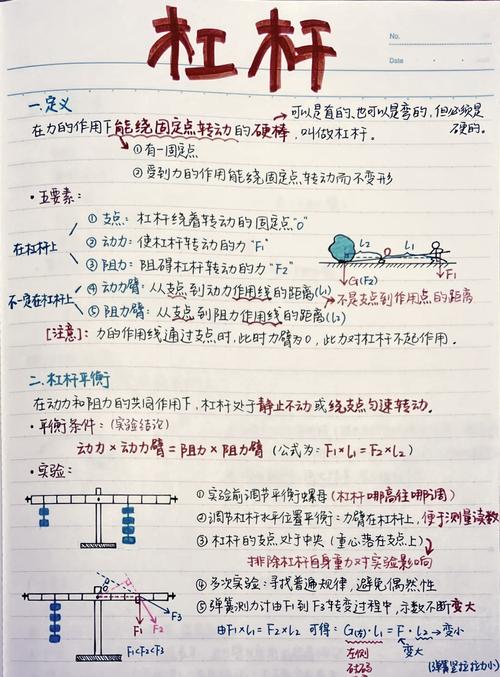 杠杆
No.
Date
一.定义
可以是直的、也可以是弯的,但必须是硬的。
在力的作用下能绕固定点转动的硬棒,叫做杠杆。
①有一固定点
②受到力的作用能绕固定点转动而不变形
·五要素:
在杠杆上
①支点:杠杆绕着转动的固定点"O"
②动力:使杠杆转动的力"F1"
③阻力:阻碍杠杆转动的力"F2"
不一定在杠杆上
④动力臂:从支点到动力作用线的距离(L1)
⑤阻力臂:从支点到阻力作用线的距离(L2)
不是支点到作用点的距离
L2 O L1
G(F2) F1
[注意]:力的作用线通过支点时,此时力臂为0,此力对杠杆不起作用.
二.杠杆平衡
在动力和阻力的共同作用下,杠杆处于静止不动或绕支点匀速转动.
·平衡条件:(实验结论)
动力×动力臂=阻力×阻力臂(公式为:F1×L1=F2×L2)
·实验:
①实验前调节平衡螺母(杠杆哪高往哪调)
②调节杠杆水平位置平衡:力臂在杠杆上,便于测量读数
③杠杆的支点处于中央(重心落在支点上)
排除杠杆自身重力对实验影响
④多次实验:寻找普遍规律,避免偶然性
⑤弹簧测力计由F1到F3转变过程中,示数不断变大
F1 F2 F3
F1<F2<F3
由F1×L1=F2×L2 可得:G(左)·L1=F·L2→变小
左侧砝码
变大